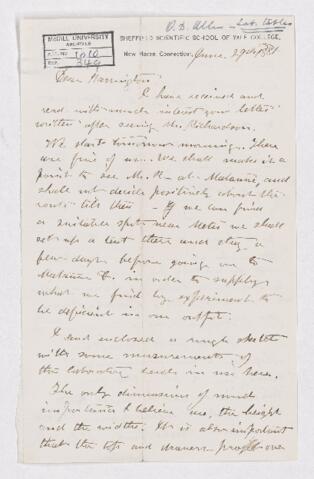 McGILL UNIVERSITY
ARCHIVES
ACC. 1010
REF. 344
SHEFFIELD SCIENTIFIC SCHOOL OF YALE COLLEGE,
New Haven, Connecticut, June 29th 1881
Dear Harrington:
I have received and
read with much interest your letter
written after seeing Mr. Richardson.
We start tomorrow morning. There
are five of us. We shall make it a
point to see Mr. R. at Matanne, and
shall not decide positively about the
route till then — If we can find
a suitable spot near Metis we shall
set up a tent there and stay a
few days before going on to
Matanne in order to supply
what we find by experiment to
be deficient in our outfit.
I send enclosed a rough sketch
with some measurements of
the laboratory desks in use here.
The only dimensions of much
importance I believe are, the height
and the widths. It is also important
that the top and drawers project over